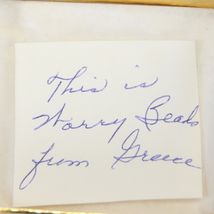 This is
Worry Beads
from Greece